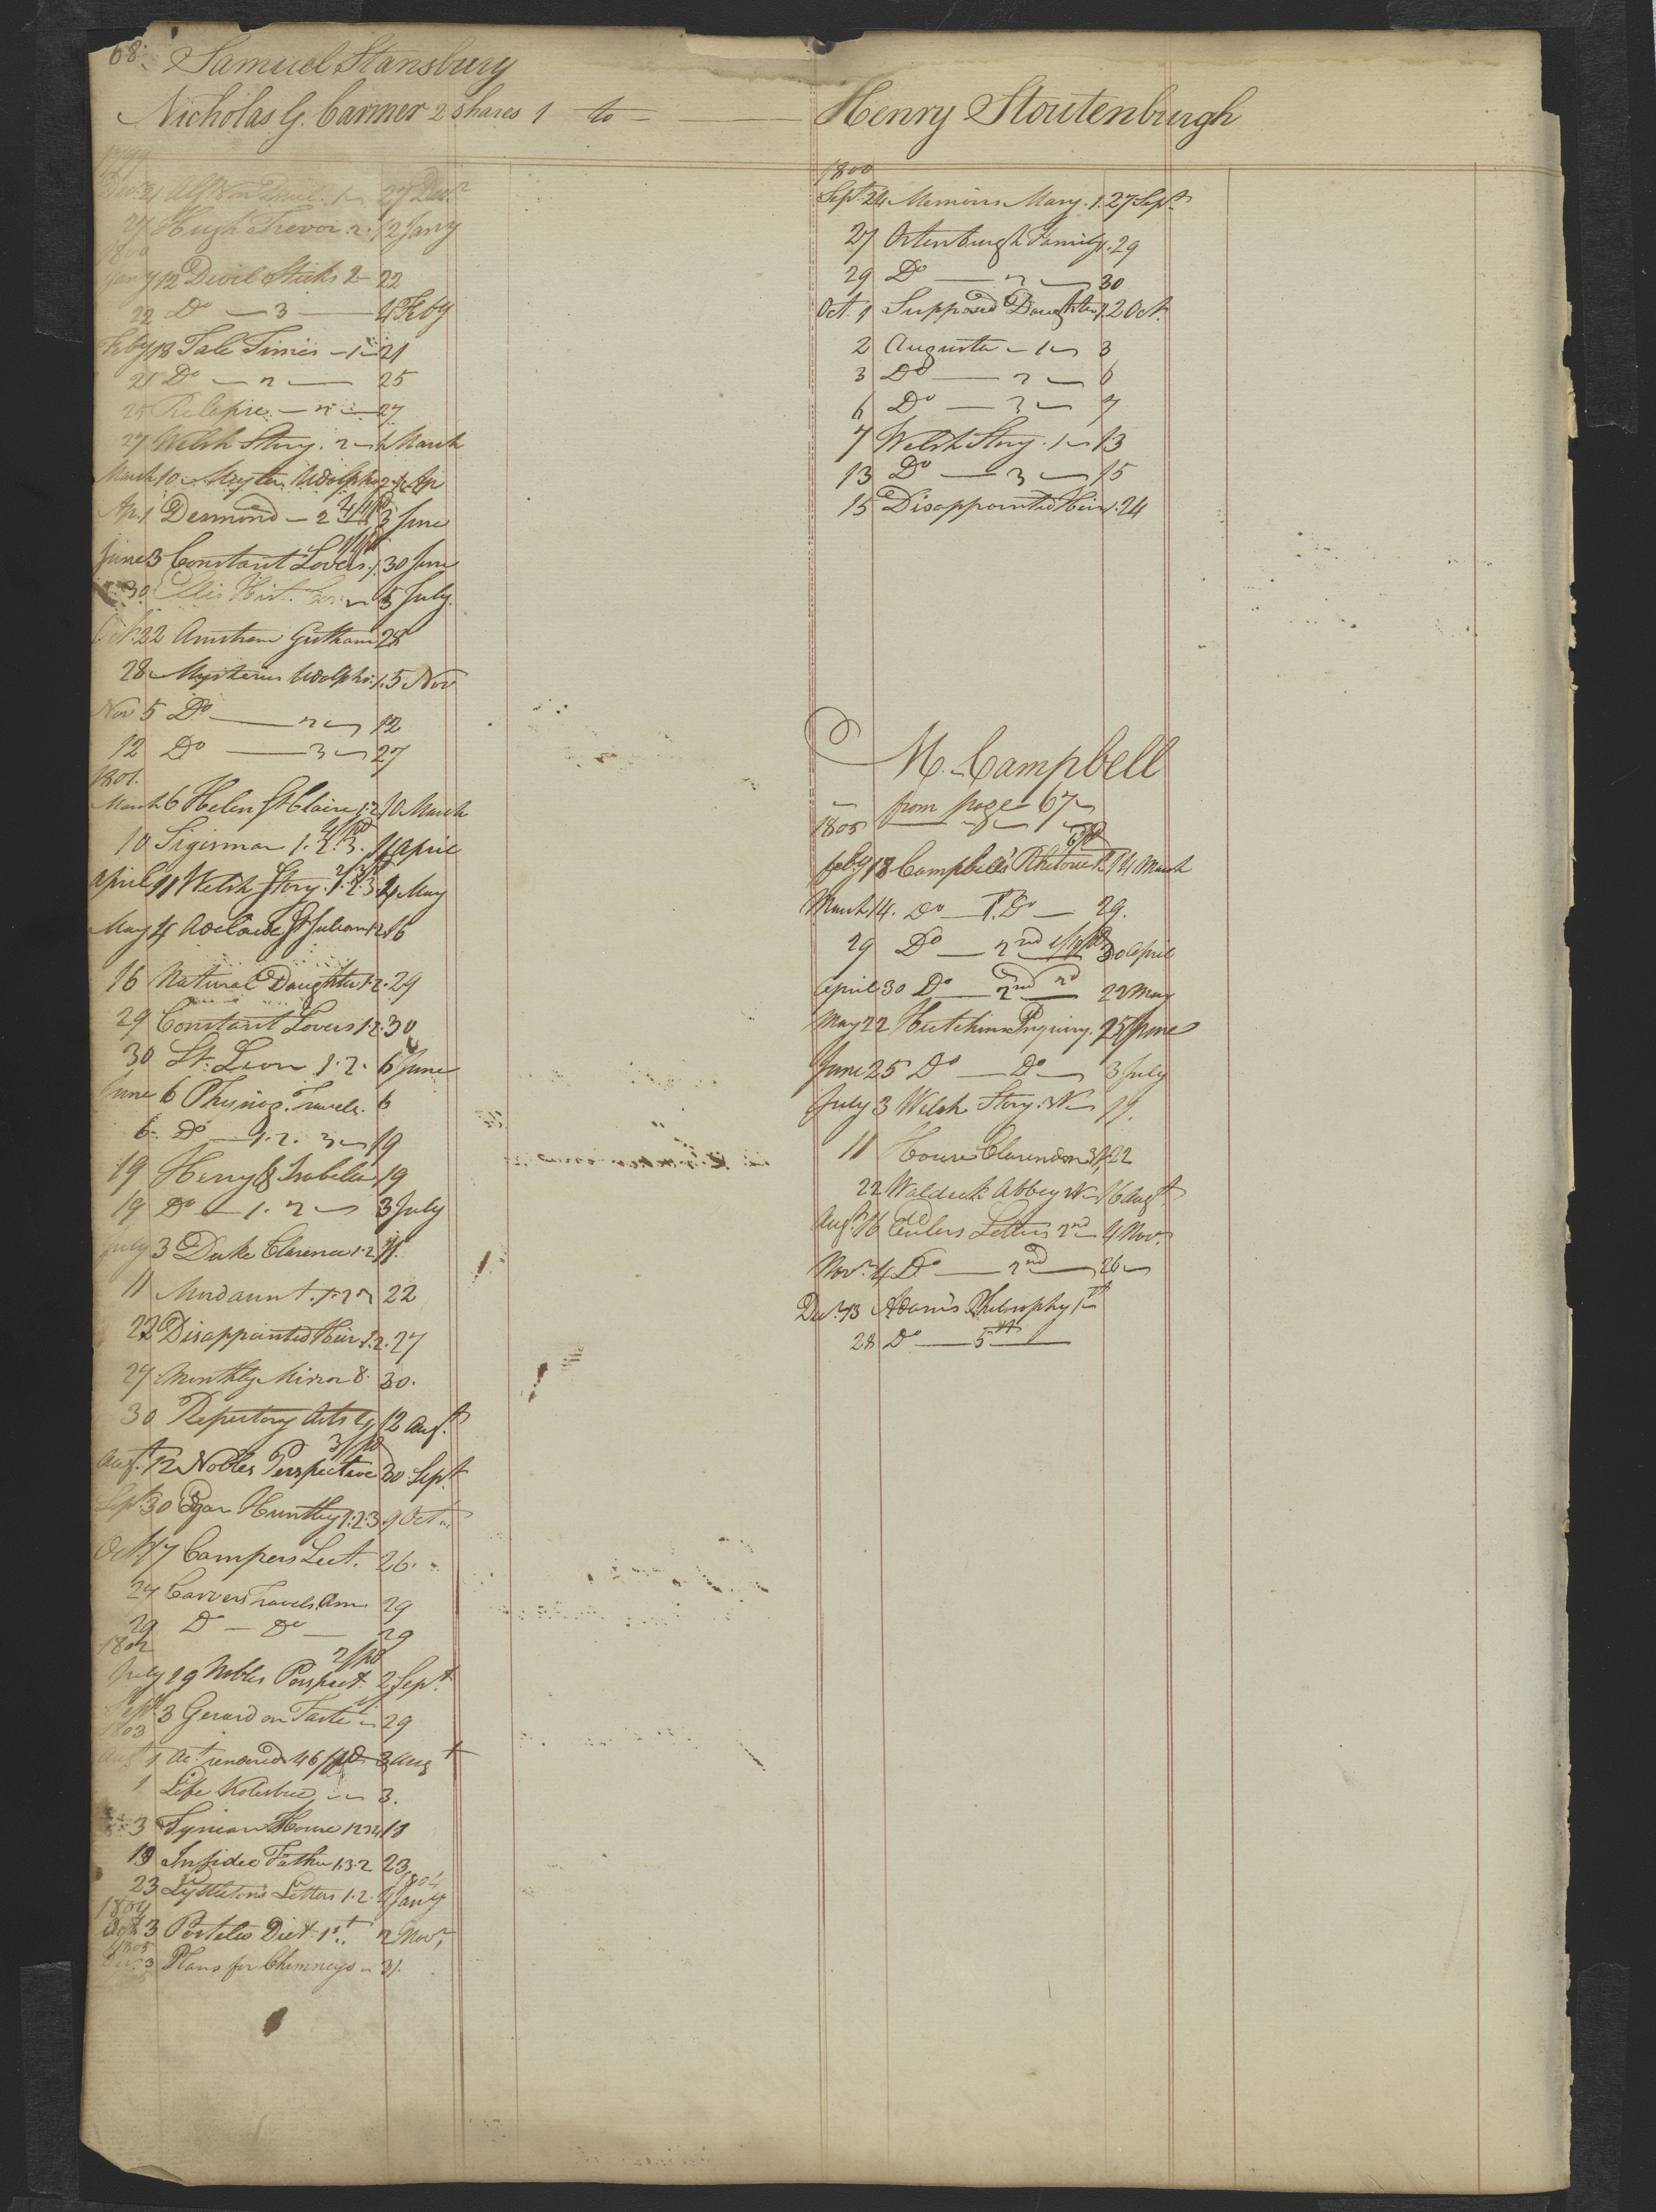 68
Samuel Stansbury
Nicholas G. Carmer 2 Shares 1 to
1799
Dec. 21 1 27 Decr
27 Hugh Trevor 2. 12 Jany
1800
Jany 12 Devil Sticks 2 22
22 Do 3 4 Feby
Feby 18 Tale Times 1 21
21 Do 2 25
25 27
27 Welsh Story. 2 March
March 10 Myster. Udolpho 2 1 Ap
Ap. 1 Desmond 2 3 June
June 3 Constant Lovers 1. 30 June
30 Hist. 5 July.
Oct. 22 28
28 Mysteries Udolpho 1. 5 Nov
Nov 5 Do 2 12
12 Do 3 27
1801.
March 6 Helen St Claire 1.2 10 March
10 Sigismar 1. 2. 3. 11 April
April 11 Welsh Story. 1. 2. 3. 4 May
May 4 Adelaide St Julian 1.2 16
16 Natural Daughter 1.2. 29
29 Constant Lovers 1.2. 30
30 St. Leon 1. 2. 6 June
June 6 Physiog. Travels. 6
6. Do 1. 2. 3 19
19 Henry & Isabella 19
19 Do 1. 2 3 July
July 3 Duke Clarence 1.2 11.
11 Mordaunt. 1. 2 22
22 Disappointed Heir 1.2. 27
27 Monthly Mirror 8. 30.
30 Repertory Arts 12 Augt
3/pd
Augt. 12 Nobles Perspective 30 Sept
Sept. 30 Edgar Huntley 1.2.3. 9 Oct
Oct. 17 Campers Lect. 26.
27 Carvers Travels. Am 29
29 Do Do 29
1802
2/pd
July 19 Nobles Perspect. 2 Sept.
Sept. 3 Gerard on Taste 29
1803
Augt 1 Act. rendered 46/pd 3 Augt
1 Life Kotzebue 3.
3 Tynian House 18
18 Infidel Father 1.3.2 23
1804
23 Lyttleton's Letters 1.2. 4 Jany
1804
Oct 3 Postelw Dict 1st. 2 Novr
1805
Dec. 3 Plans for Chimneys 31.
Henry Stoutenburgh
1800
Sept. 24 Memoirs Mary. 1. 27 Sept
27 Ortenburgh Family 1. 29
29 Do 2 30
Oct. 1 Supposed Daughter 1 2 Oct.
2 Augusta 1 3
3 Do 2 6
6 Do 3 7
7 Welsh Story. 1 13
13 Do 3 15
15 Disappointed Heir 1. 24
M. Campbell
from page 67
1805
6/pd
Feby 18 Campbell's Rhetoric 1st 14 March
March 14. Do 1st. Do 29.
29 Do 2nd 1/pd 30 April
April 30 Do 2nd 22 May
May 22 Hutchins Inquiry. 25 June
June 25 Do Do 3 July
July 3 Welsh Story. 11.
11 House Clarendon 22
22 Waldeck Abbey 16 Augt
Augt. 16 Eulers Letters 2nd 4 Novr.
Novr. 4 Do 2nd 26
Decr. 13 Adam's Philosophy 1st
28 Do 5th